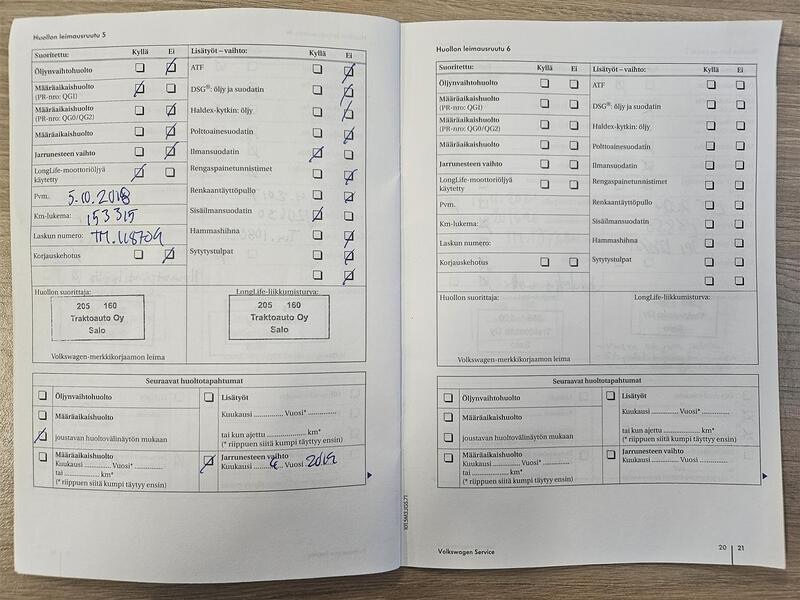 Huollon leimausruutu 5
Suoritettu: Kyllä Ei
Öljynvaihtohuolto
Määräaikaishuolto
(PR-nro: QGI)
Määräaikaishuolto
(PR-nro: QG0/QG2)
Määräaikaishuolto
Jarrunesteen vaihto
LongLife-moottoriöljyä
käytetty
Pvm. 5.10.2018
Km-lukema: 153315
Laskun numero: TM.118709
Korjauskehotus
Lisätyöt – vaihto: Kyllä Ei
ATF
DSG®: öljy ja suodatin
Haldex-kytkin: öljy
Polttoainesuodatin
Ilmansuodatin
Rengaspainetunnistimet
Renkaantäyttöpullo
Sisäilmansuodatin
Hammashihna
Sytytystulpat
Huollon suorittaja:
205 160
Traktoauto Oy
Salo
Volkswagen-merkkikorjaamon leima
LongLife-liikkumisturva:
205 160
Traktoauto Oy
Salo
Seuraavat huoltotapahtumat
Öljynvaihtohuolto
Määräaikaishuolto
joustavan huoltovälinäytön mukaan
Määräaikaishuolto
Kuukausi ............ Vuosi* ............
tai ..................... km*
(* riippuen siitä kumpi täyttyy ensin)
Lisätyöt
Kuukausi ............ Vuosi* ............
tai kun ajettu ..................... km*
(* riippuen siitä kumpi täyttyy ensin)
Jarrunesteen vaihto
Kuukausi ............ Vuosi 2019
Huollon leimausruutu 6
Suoritettu: Kyllä Ei
Öljynvaihtohuolto
Määräaikaishuolto
(PR-nro: QGI)
Määräaikaishuolto
(PR-nro: QG0/QG2)
Määräaikaishuolto
Jarrunesteen vaihto
LongLife-moottoriöljyä
käytetty
Pvm.
Km-lukema:
Laskun numero:
Korjauskehotus
Lisätyöt – vaihto: Kyllä Ei
ATF
DSG®: öljy ja suodatin
Haldex-kytkin: öljy
Polttoainesuodatin
Ilmansuodatin
Rengaspainetunnistimet
Renkaantäyttöpullo
Sisäilmansuodatin
Hammashihna
Sytytystulpat
Huollon suorittaja:
Volkswagen-merkkikorjaamon leima
LongLife-liikkumisturva:
Seuraavat huoltotapahtumat
Öljynvaihtohuolto
Määräaikaishuolto
joustavan huoltovälinäytön mukaan
Määräaikaishuolto
Kuukausi ............ Vuosi* ............
tai ..................... km*
(* riippuen siitä kumpi täyttyy ensin)
Lisätyöt
Kuukausi ............ Vuosi* ............
tai kun ajettu ..................... km*
(* riippuen siitä kumpi täyttyy ensin)
Jarrunesteen vaihto
Kuukausi ............ Vuosi ............
Volkswagen Service
20 21